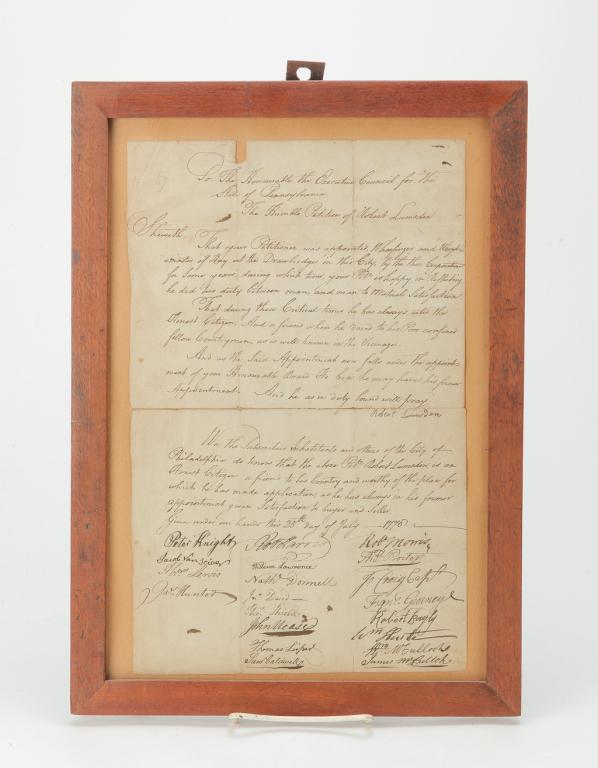 To The Honourable the Executive Council for the
State of Pennsylvania
The Humble Petition of Robert Lumsden
Sheweth
That your Petitioner was appointed Wharfinger and Weigh
master of Hay at the Drawbridge in this City, by the then Corporation
for some years, during which time your Petr. is happy in Reflecting
he did his duty between man, and man to Mutual Satisfaction
That during these Critical times he has always acted the
Honest Citizen, And a friend when he dared to his Poor confined
fellow Countrymen, as is well known in the Vicinage.
And as the said Appointment now falls under the appoint-
ment of your Honourable Board He hops he may have his former
Appointment. And he as in duty bound will pray
Robert Lumsden
We the Subscribers Inhabitants and others of the City of
Philadelphia do know that the above Petr. Robert Lumsden is an
Honest Citizen a friend to his Country and worthy of the place for
which he has made application, as he has always in his former
appointment given Satisfaction to buyer and seller
Given under our hands this 28th day of July 1778
Peter Knight Robt Morris
Thos. Procter
Willm Lawrence
Lewis Nathl. Donnell J. Craig Capt
Jas. Hunter
Thos. Shields Robert Bayly
John Mease
McCulloch
Saml Caldwell James McCulloh